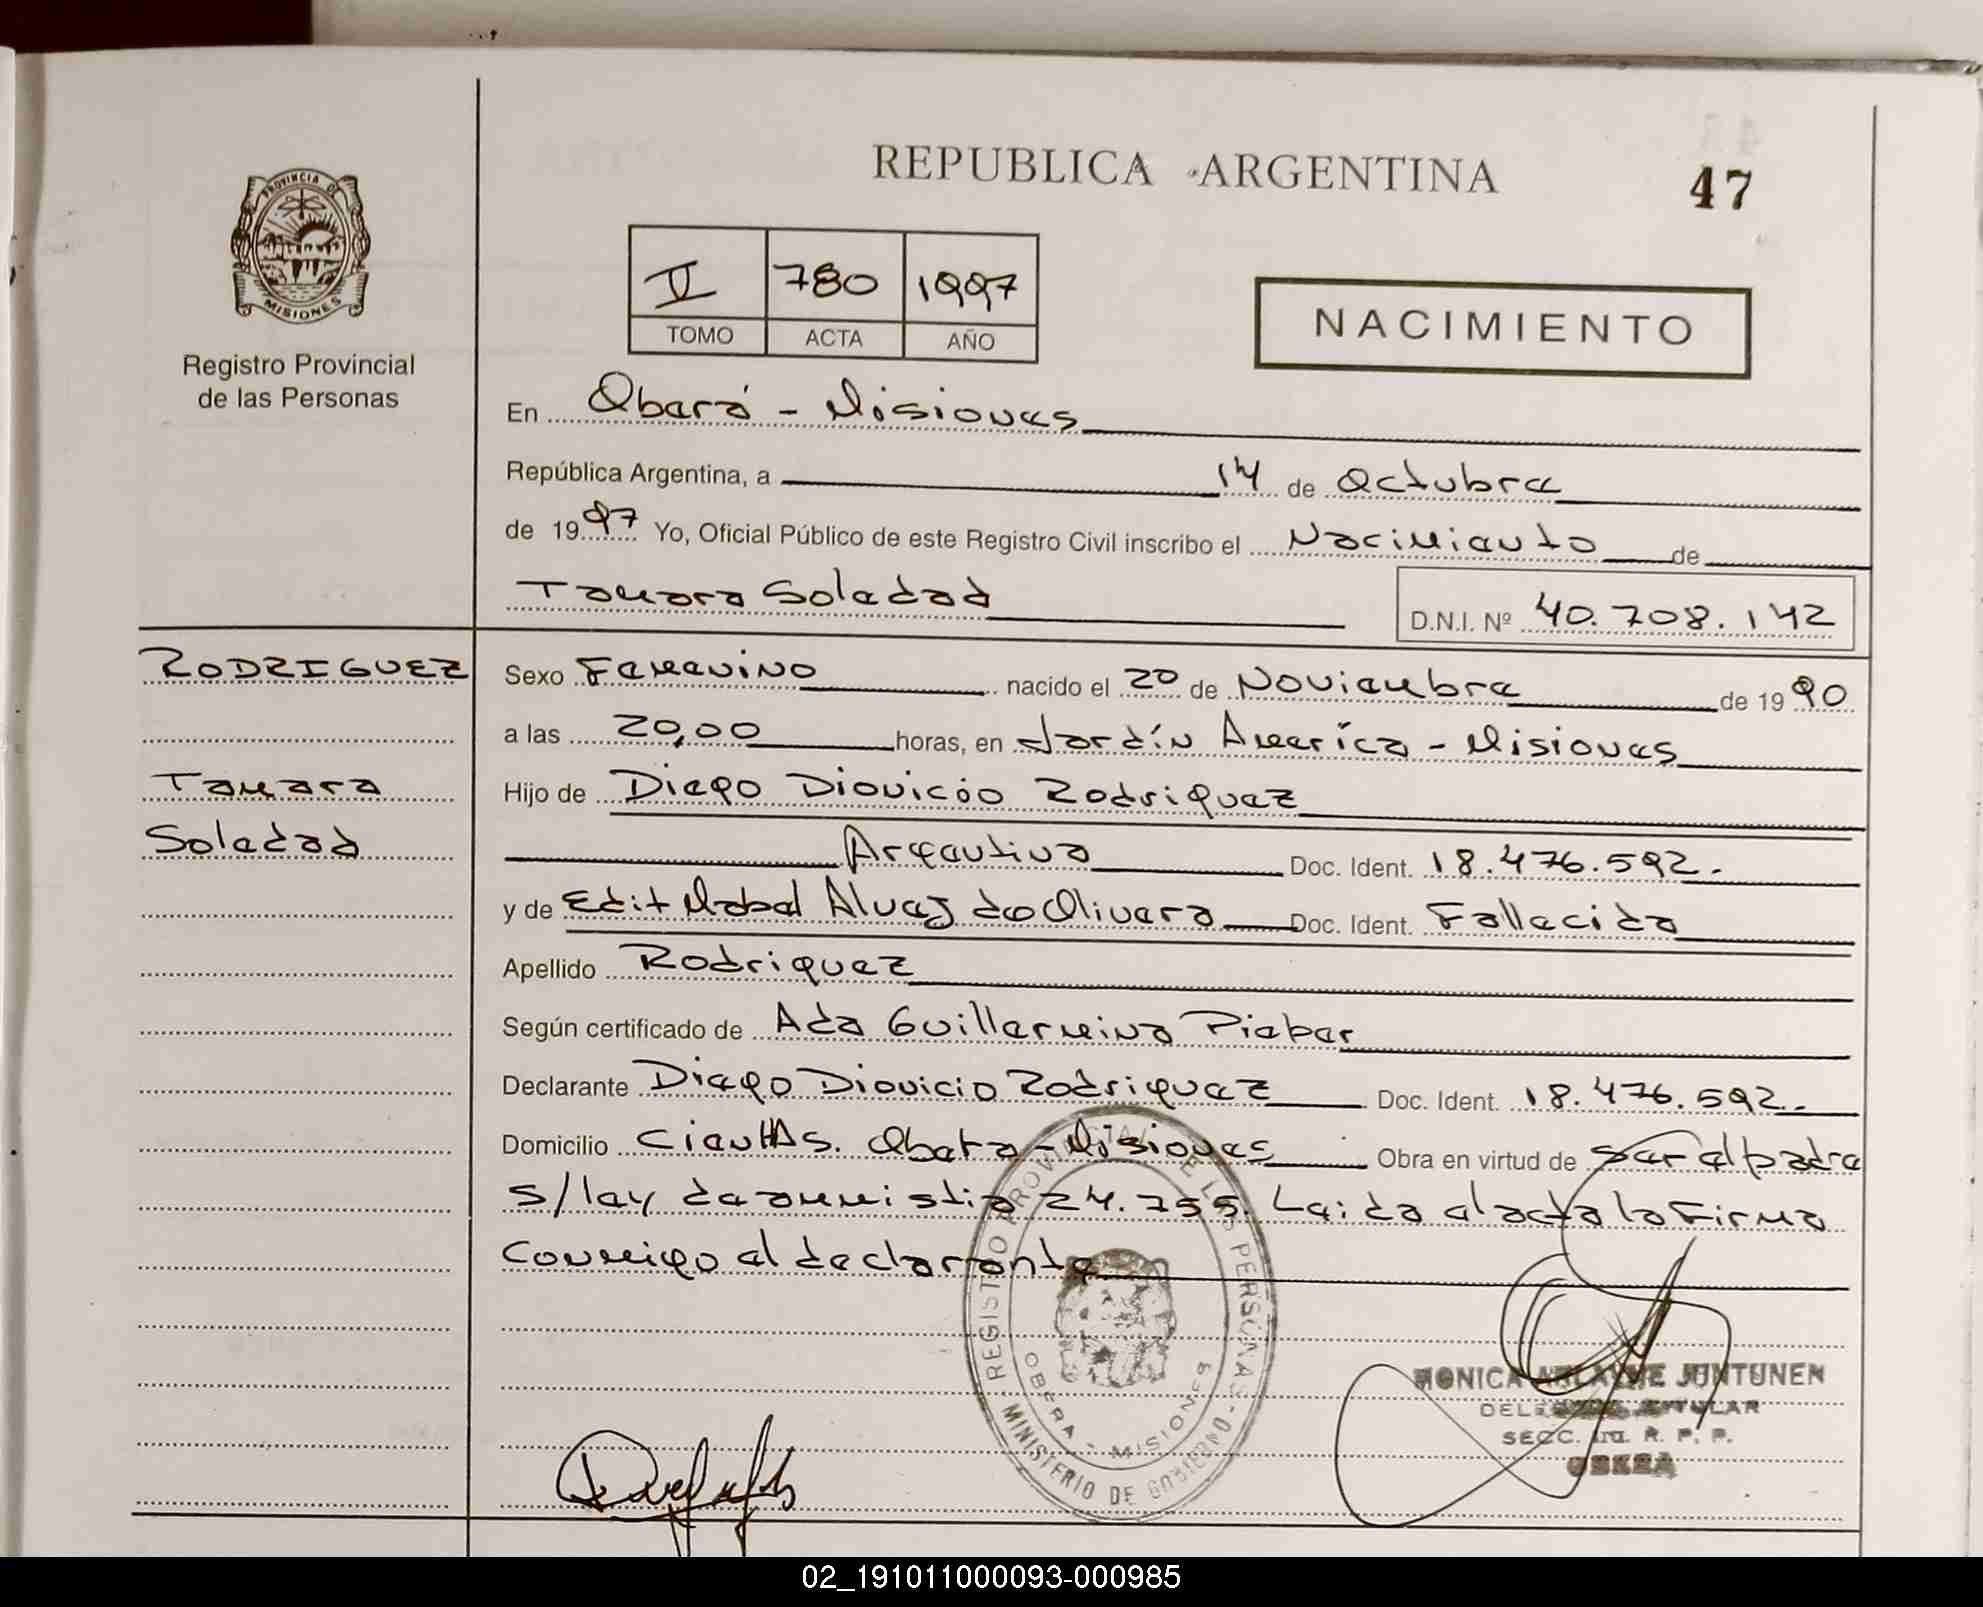 REPUBLICA ARGENTINA
47
PROVINCIA DE
MISIONES
Registro Provincial
de las Personas
II 780 1997
TOMO ACTA AÑO
NACIMIENTO
En Oberá - Misiones
República Argentina, a 14 de Octubre
de 1997 Yo, Oficial Público de este Registro Civil inscribo el Nacimiento de
Tamara Soledad
D.N.I. Nº 40.708.142
RODRIGUEZ
Tamara
Soledad
Sexo Femenino nacido el 20 de Noviembre de 1990
a las 20,00 horas, en Jardín América - Misiones
Hijo de Diego Dionicio Rodriguez
Argentino Doc. Ident. 18.476.592.
y de Edit Mabel Alvez de Olivera Doc. Ident. Fallecida
Apellido Rodriguez
Según certificado de Ada Guillermina Pieber
Declarante Diego Dionicio Rodriguez Doc. Ident. 18.476.592.
Domicilio Obera - Misiones Obra en virtud de ser el padre
s/ley de amnistia 24.755. Leida el acta la firma
conmigo el declarante
REGISTRO PROVINCIAL DE LAS PERSONAS
OBERA - MISIONES
MINISTERIO DE GOBIERNO
MONICA JUNTUNEN
TITULAR
SECC. 1ra. R. P. P.
OBERA
02_191011000093-000985